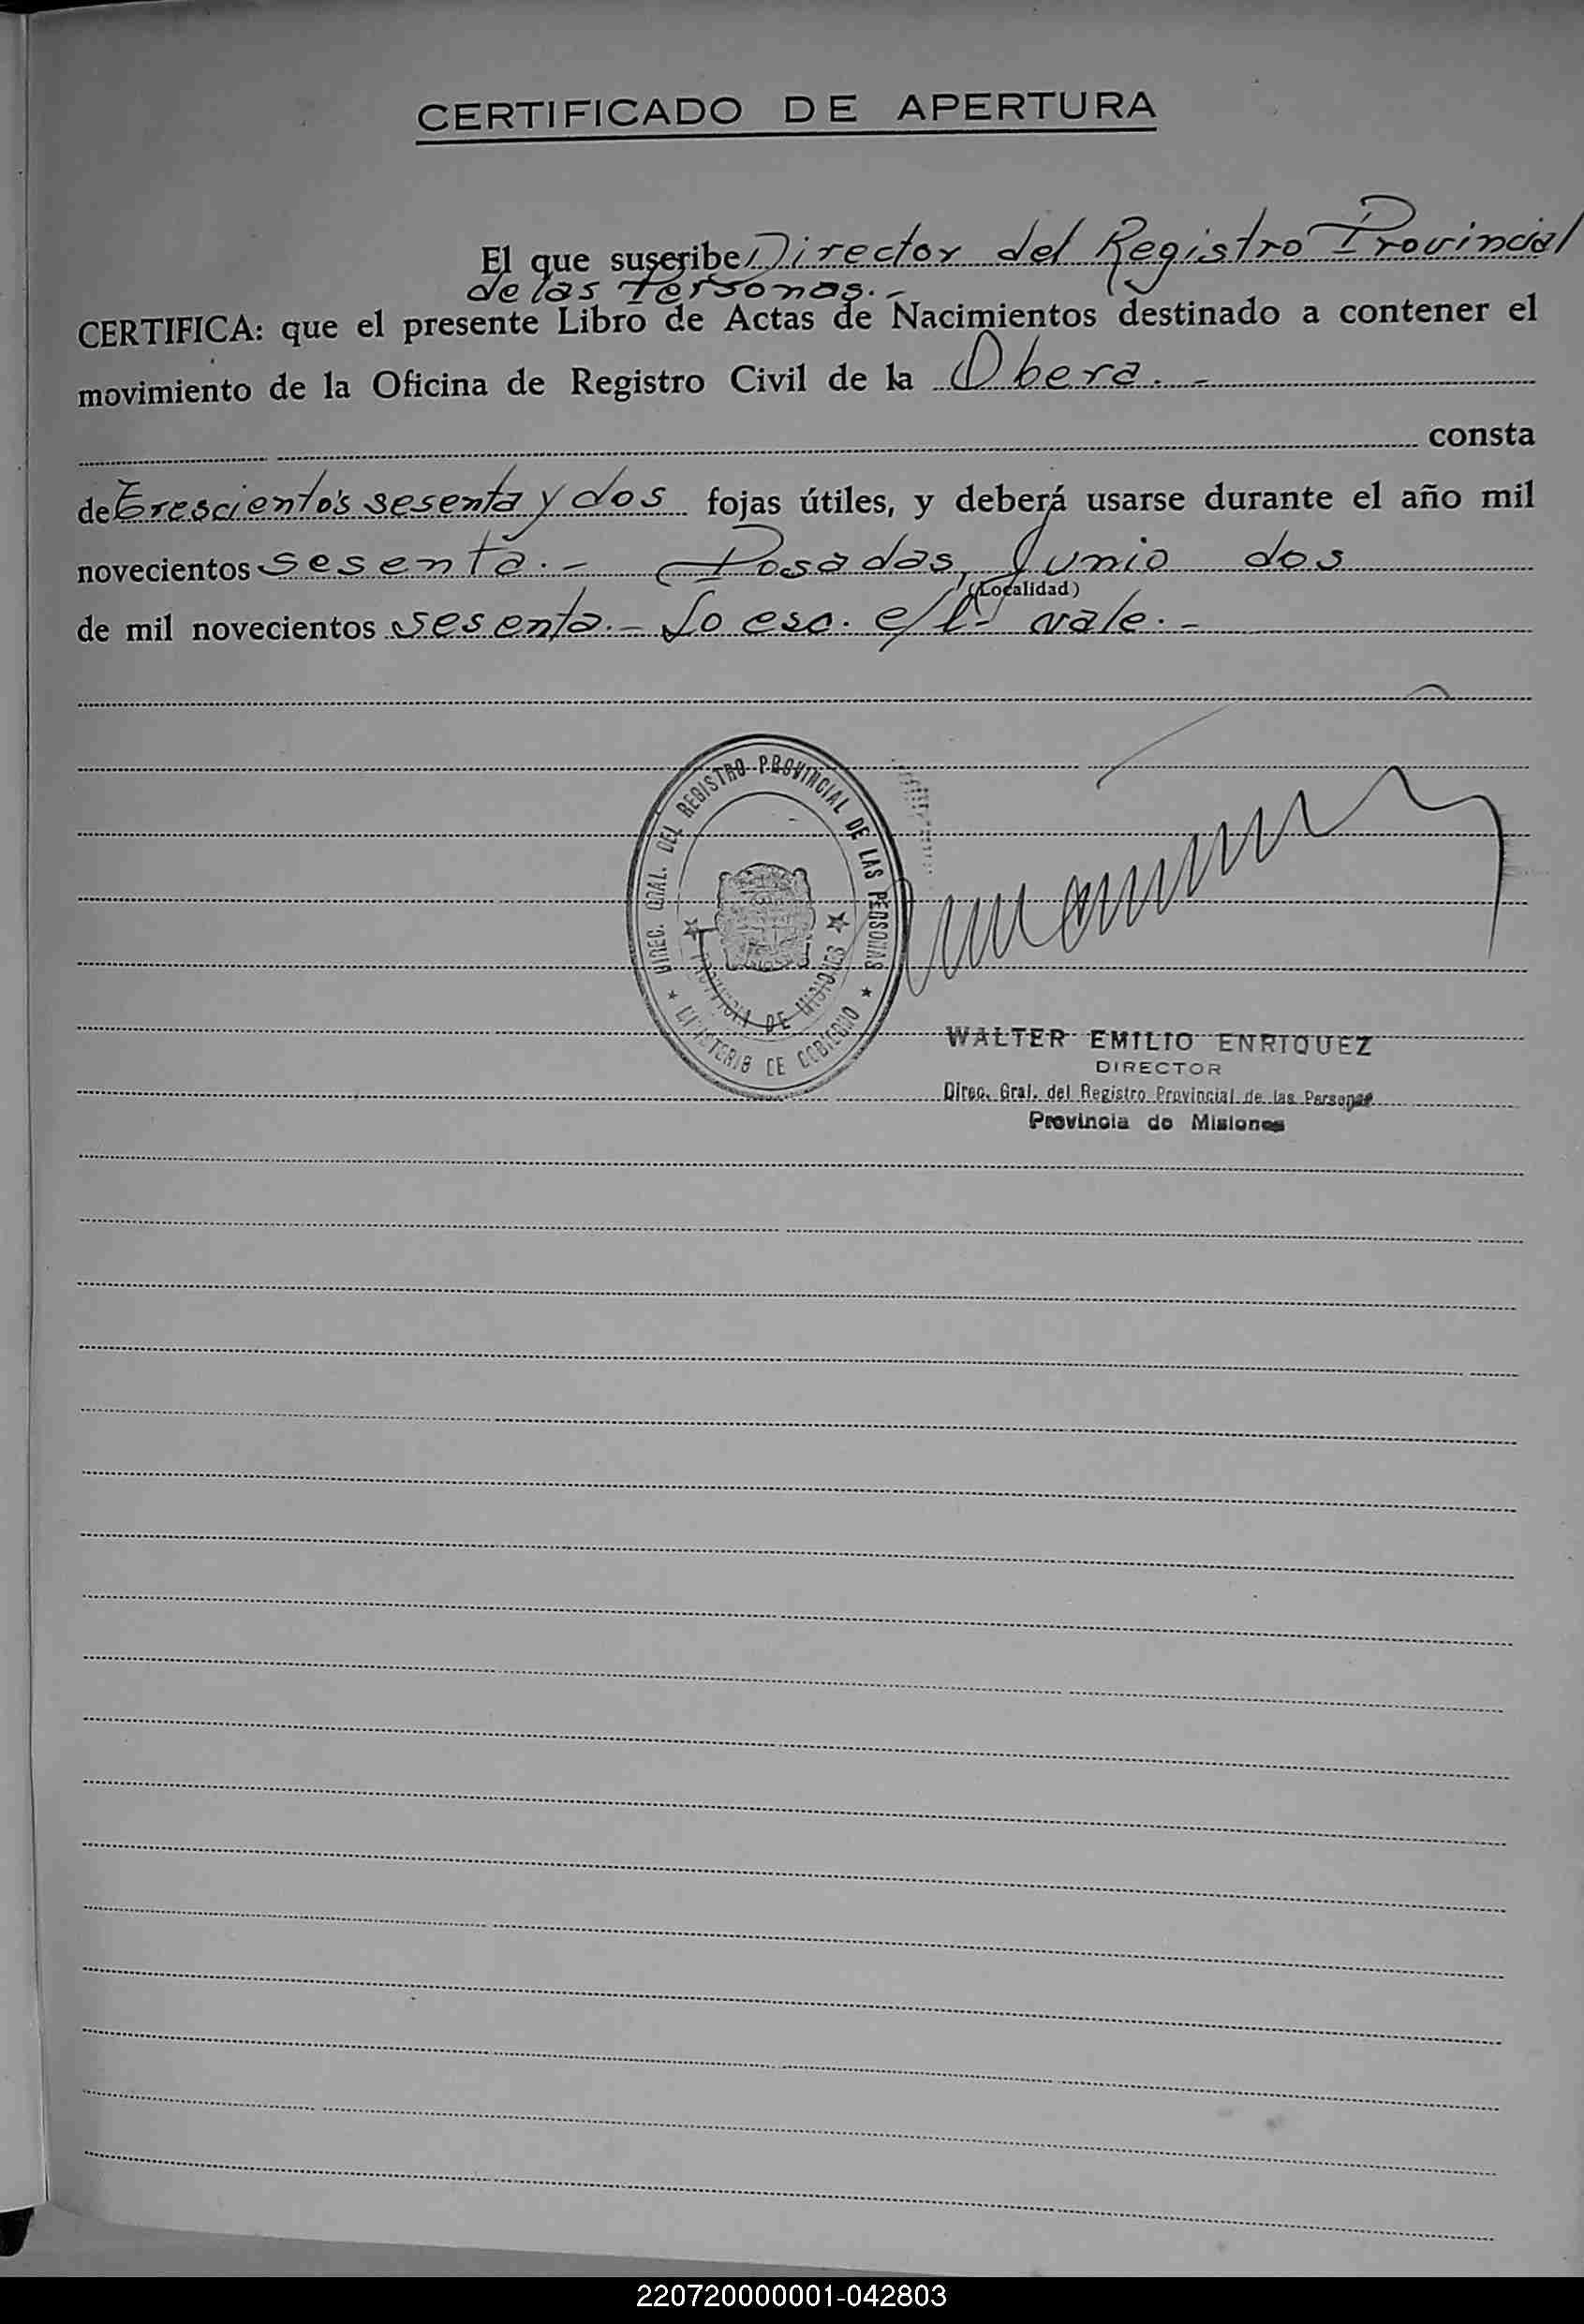 CERTIFICADO DE APERTURA
El que suscribe Director del Registro Provincial
de las Personas.-
CERTIFICA: que el presente Libro de Actas de Nacimientos destinado a contener el
movimiento de la Oficina de Registro Civil de la Obera.-
consta
de Trescientos sesenta y dos fojas útiles, y deberá usarse durante el año mil
novecientos sesenta.- Posadas, Junio dos
(Localidad)
de mil novecientos sesenta.- So esc. e/l- vale.-
DIREC. GRAL. DEL REGISTRO PROVINCIAL DE LAS PERSONAS
PROVINCIA DE MISIONES
MINISTERIO DE GOBIERNO
WALTER EMILIO ENRIQUEZ
DIRECTOR
Direc. Gral. del Registro Provincial de las Personas
Provincia de Misiones
220720000001-042803